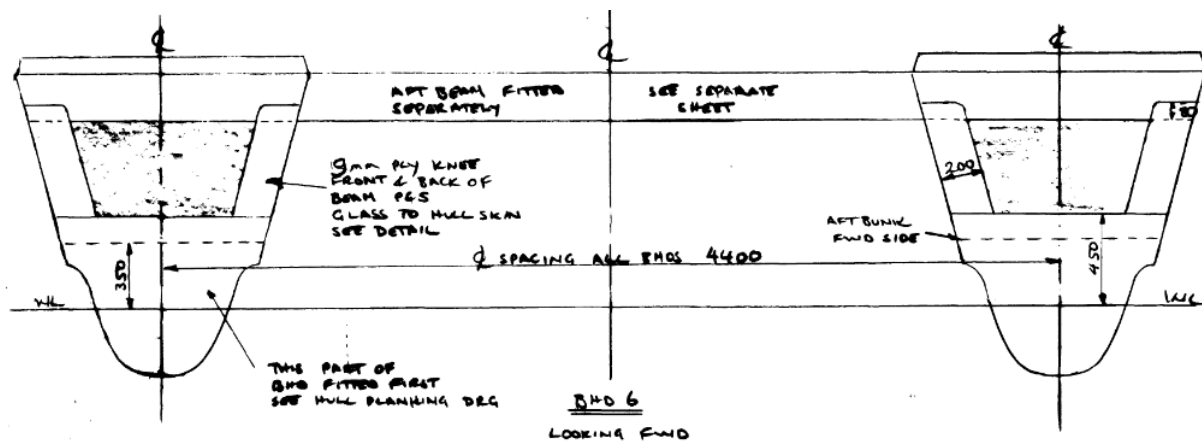 ℄
℄
℄
AFT BEAM FITTED
SEPERATELY
SEE SEPARATE
SHEET
80
9mm PLY KNEE
FRONT & BACK OF
BEAM P&S
GLASS TO HULL SKIN
SEE DETAIL
200
AFT BUNK
FWD SIDE
350
℄ SPACING ALL BHDS 4400
450
WL
WL
THIS PART OF
BHD FITTED FIRST
SEE HULL PLANKING DRG
BHD 6
LOOKING FWD